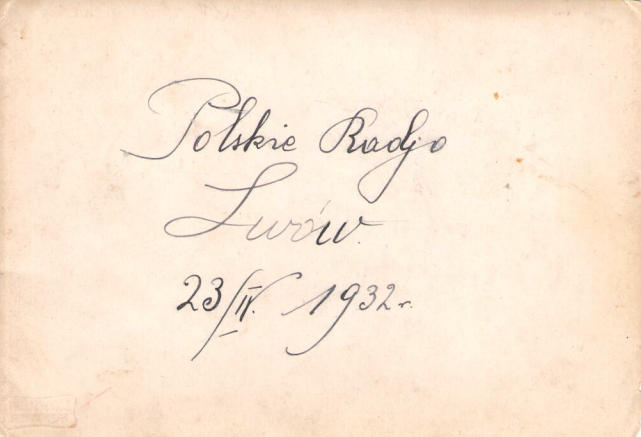 Polskie Radjo
Lwów.
23/IV. 1932 r.